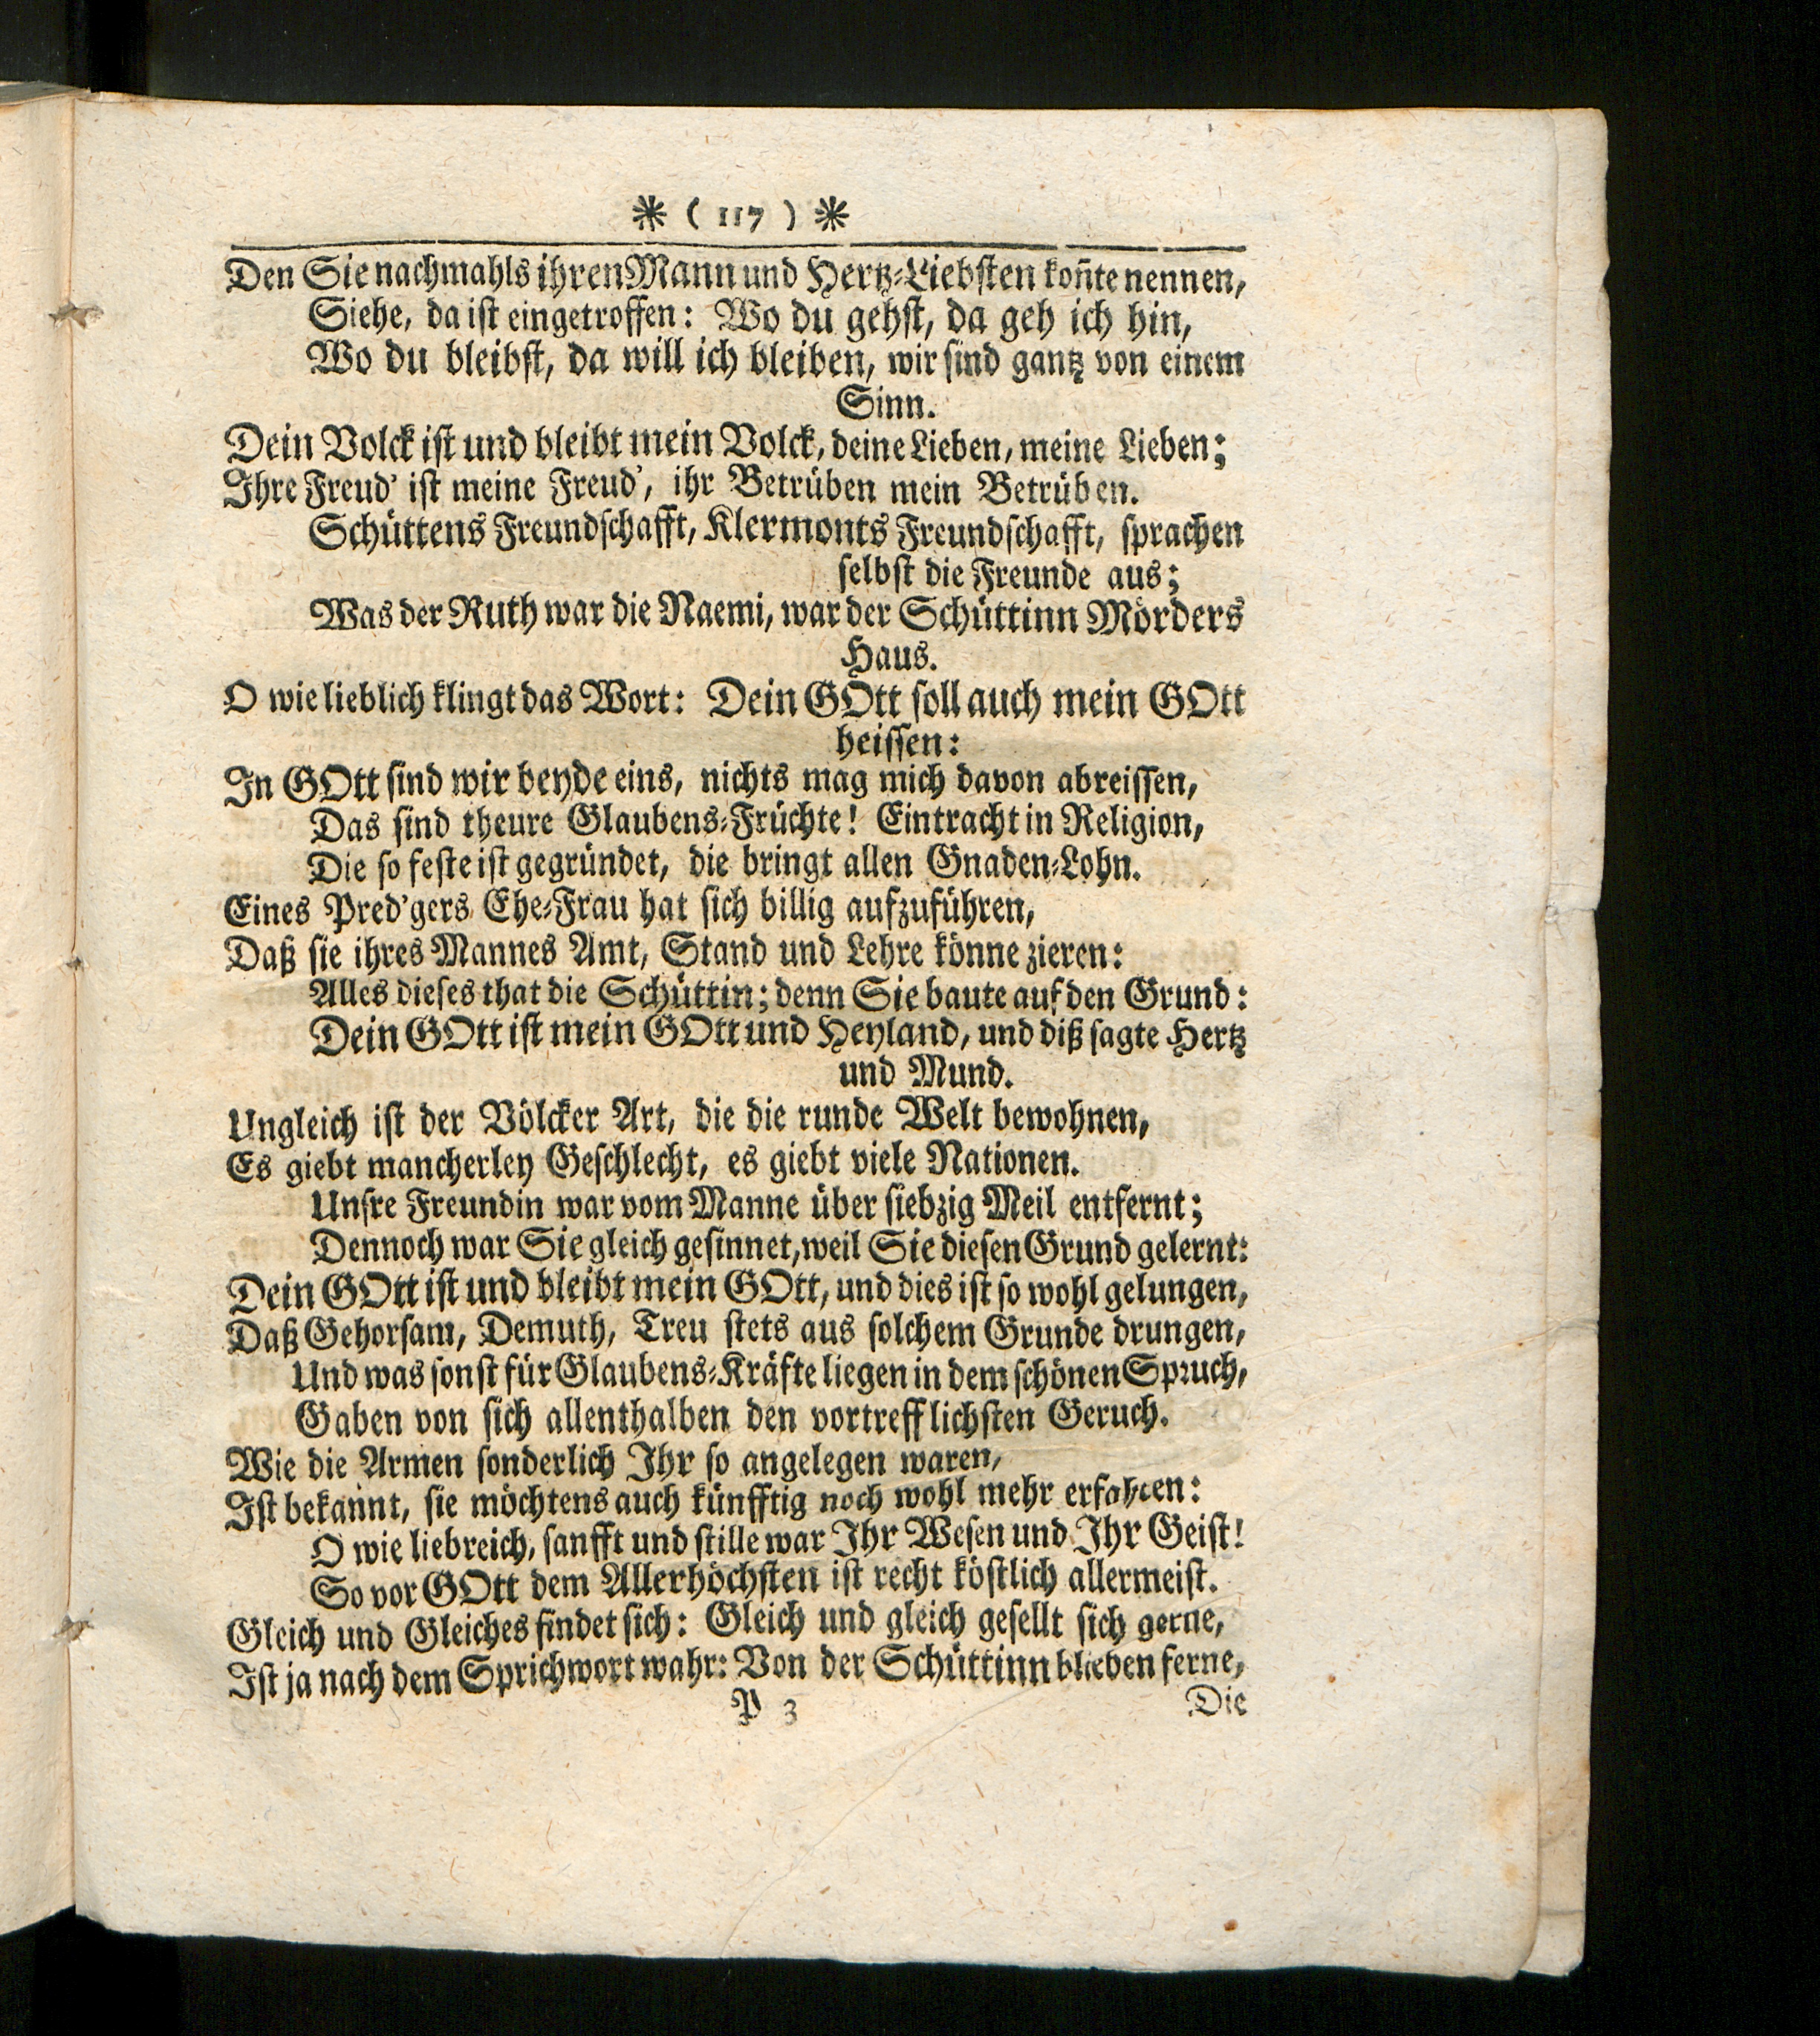 ❋ ( 117 ) ❋
Den Sie nachmahls ihren Mann und Hertz-Liebsten kon̄te nennen,
Siehe, da ist eingetroffen: Wo du gehst, da geh ich hin,
Wo du bleibst, da will ich bleiben, wir sind gantz von einem
Sinn.
Dein Volck ist und bleibt mein Volck, deine Lieben, meine Lieben;
Ihre Freud' ist meine Freud', ihr Betrüben mein Betrüben.
Schüttens Freundschafft, Klermonts Freundschafft, sprachen
selbst die Freunde aus;
Was der Ruth war die Naemi, war der Schüttinn Mörders
Haus.
O wie lieblich klingt das Wort: Dein GOtt soll auch mein GOtt
heissen:
In GOtt sind wir beyde eins, nichts mag mich davon abreissen,
Das sind theure Glaubens-Früchte! Eintracht in Religion,
Die so feste ist gegründet, die bringt allen Gnaden-Lohn.
Eines Pred'gers Ehe-Frau hat sich billig aufzuführen,
Daß sie ihres Mannes Amt, Stand und Lehre könne zieren:
Alles dieses that die Schüttin; denn Sie baute auf den Grund:
Dein GOtt ist mein GOtt und Heyland, und diß sagte Hertz
und Mund.
Ungleich ist der Völcker Art, die die runde Welt bewohnen,
Es giebt mancherley Geschlecht, es giebt viele Nationen.
Unsre Freundin war vom Manne über siebzig Meil entfernt;
Dennoch war Sie gleich gesinnet, weil Sie diesen Grund gelernt:
Dein GOtt ist und bleibt mein GOtt, und dies ist so wohl gelungen,
Daß Gehorsam, Demuth, Treu stets aus solchem Grunde drungen,
Und was sonst für Glaubens-Kräfte liegen in dem schönen Spruch,
Gaben von sich allenthalben den vortrefflichsten Geruch.
Wie die Armen sonderlich Ihr so angelegen waren,
Ist bekannt, sie möchtens auch künfftig noch wohl mehr erfahren:
O wie liebreich, sanfft und stille war Ihr Wesen und Ihr Geist!
So vor GOtt dem Allerhöchsten ist recht köstlich allermeist.
Gleich und Gleiches findet sich: Gleich und gleich gesellt sich gerne,
Ist ja nach dem Sprichwort wahr: Von der Schüttinn blieben ferne,
P 3
Die